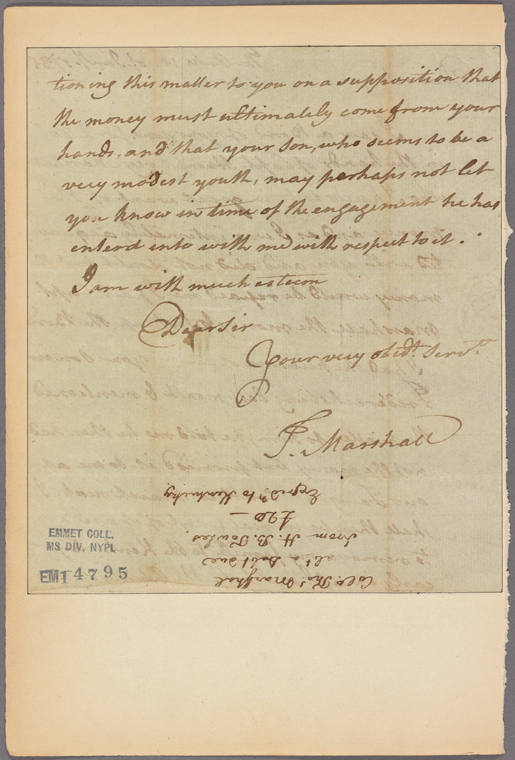 tioning this matter to you on a supposition that
the money must ultimately come from your
hands, and that your son, who seems to be a
very modest youth, may perhaps not let
you know in time of the engagement he has
enterd into with me with respect to it.
I am with much esteem
Dear Sir
Your very obedt. Servt.
T. Marshall
Colo. Thos. Marshal
Lr. Debt due
from H. B. Towles
£20—
to Kentucky
EMMET COLL.
MS DIV. NYPL
EM 14795